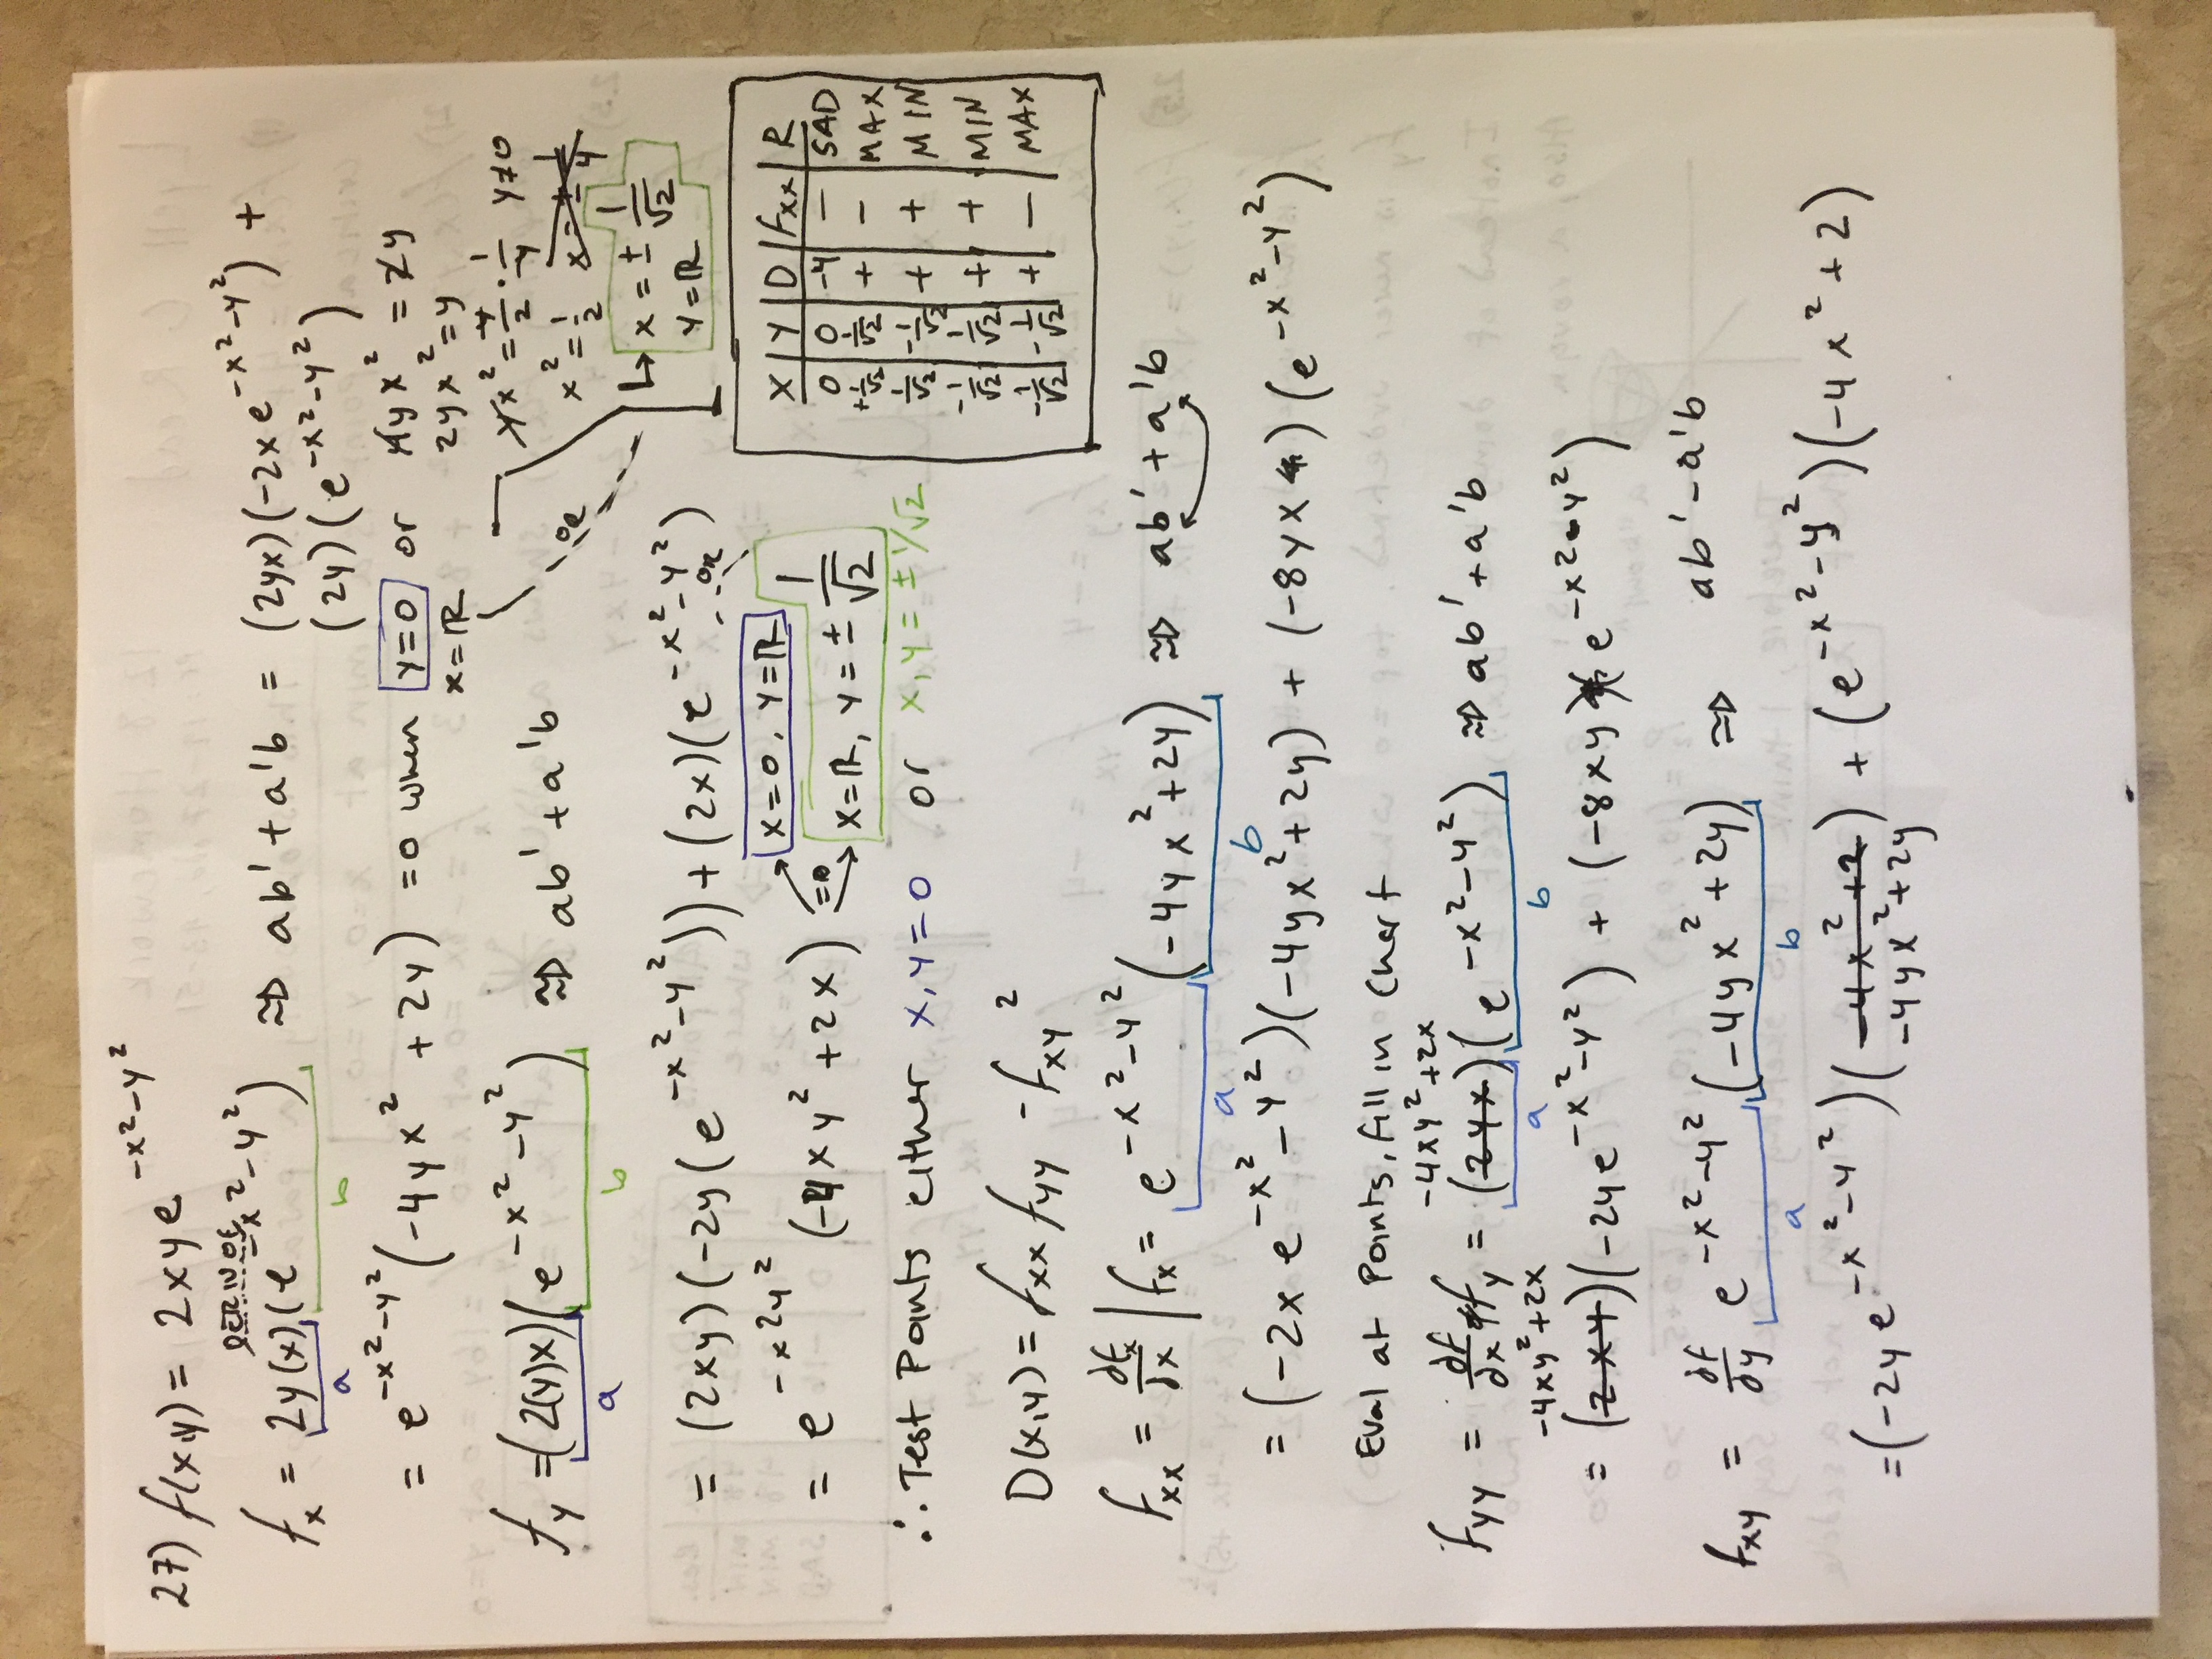 27) f(x,y) = 2xye^{-x²-y²}
DERIV OF
f_x = 2y(x)(e^{-x²-y²}) ⇒ ab' + a'b = (2yx)(-2xe^{-x²-y²}) +
a b
(2y)(e^{-x²-y²})
= e^{-x²-y²}(-4yx² + 2y) = 0 when y=0 or 4yx² = 2y
x=ℝ
2yx² = y
yx² = y/2 · 1/y y≠0
x² = 1/2 x = ± 1/4
or
↳ x = ± 1/√2
y=ℝ
f_y = (2(y)x)(e^{-x²-y²}) ⇒ ab' + a'b
a b
= (2xy)(-2y(e^{-x²-y²})) + (2x)(e^{-x²-y²})
or
= e^{-x²y²} (-4xy² + 2x) =0 → x=0, y=ℝ
→ x=ℝ, y = ± 1/√2
∴ Test Points either x,y=0 or x,y = ± 1/√2
X | Y | D | Fxx | R
0 | 0 | -4 | - | SAD
+1/√2 | 1/√2 | + | - | MAX
1/√2 | -1/√2 | + | + | MIN
-1/√2 | 1/√2 | + | + | MIN
-1/√2 | -1/√2 | + | - | MAX
D(x,y) = f_xx f_yy - f_xy²
f_xx = ∂f_x/∂x | f_x = e^{-x²-y²}(-4yx²+2y) ⇒ ab' + a'b
a b
= (-2xe^{-x²-y²})(-4yx²+2y) + (-8yx)(e^{-x²-y²})
Eval at Points, fill in Chart
-4xy²+2x
f_yy = ∂f/∂x f_y = (2yx)(e^{-x²-y²}) ⇒ ab' + a'b
a b
-4xy²+2x
= (2xy)(-2ye^{-x²-y²}) + (-8xy)(e^{-x²-y²})
f_xy = ∂f/∂y e^{-x²-y²}(-4yx²+2y) ⇒ ab' - a'b
a b
= (-2ye^{-x²-y²})(-4x²+2) + (e^{-x²-y²})(-4x²+2)
-4yx²+2y